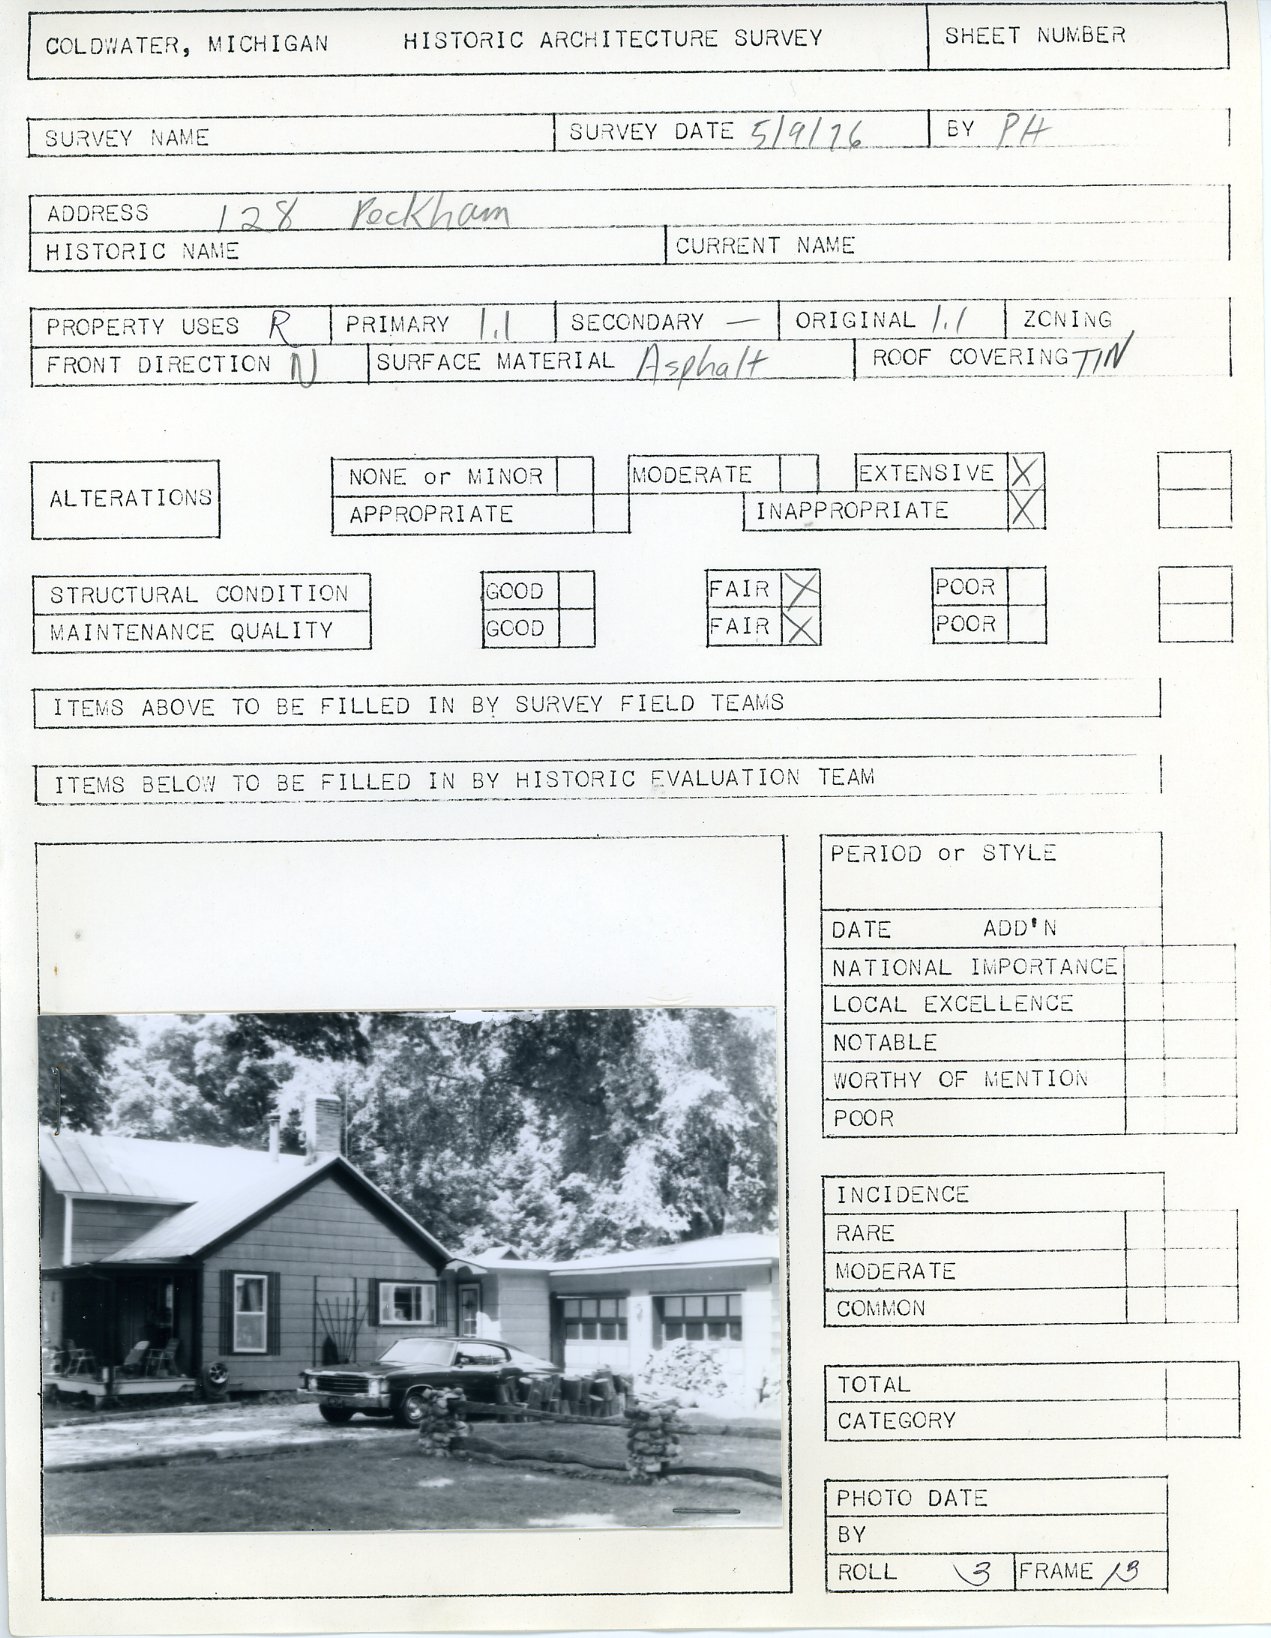 COLDWATER, MICHIGAN HISTORIC ARCHITECTURE SURVEY SHEET NUMBER
SURVEY NAME SURVEY DATE 5/9/76 BY PH
ADDRESS 128 Peckham
HISTORIC NAME CURRENT NAME
PROPERTY USES R PRIMARY 1.1 SECONDARY — ORIGINAL 1.1 ZONING
FRONT DIRECTION N SURFACE MATERIAL Asphalt ROOF COVERING TIN
ALTERATIONS
NONE or MINOR MODERATE EXTENSIVE X
APPROPRIATE INAPPROPRIATE X
STRUCTURAL CONDITION GOOD FAIR X POOR
MAINTENANCE QUALITY GOOD FAIR X POOR
ITEMS ABOVE TO BE FILLED IN BY SURVEY FIELD TEAMS
ITEMS BELOW TO BE FILLED IN BY HISTORIC EVALUATION TEAM
PERIOD or STYLE
DATE ADD'N
NATIONAL IMPORTANCE
LOCAL EXCELLENCE
NOTABLE
WORTHY OF MENTION
POOR
INCIDENCE
RARE
MODERATE
COMMON
TOTAL
CATEGORY
PHOTO DATE
BY
ROLL 3 FRAME 13